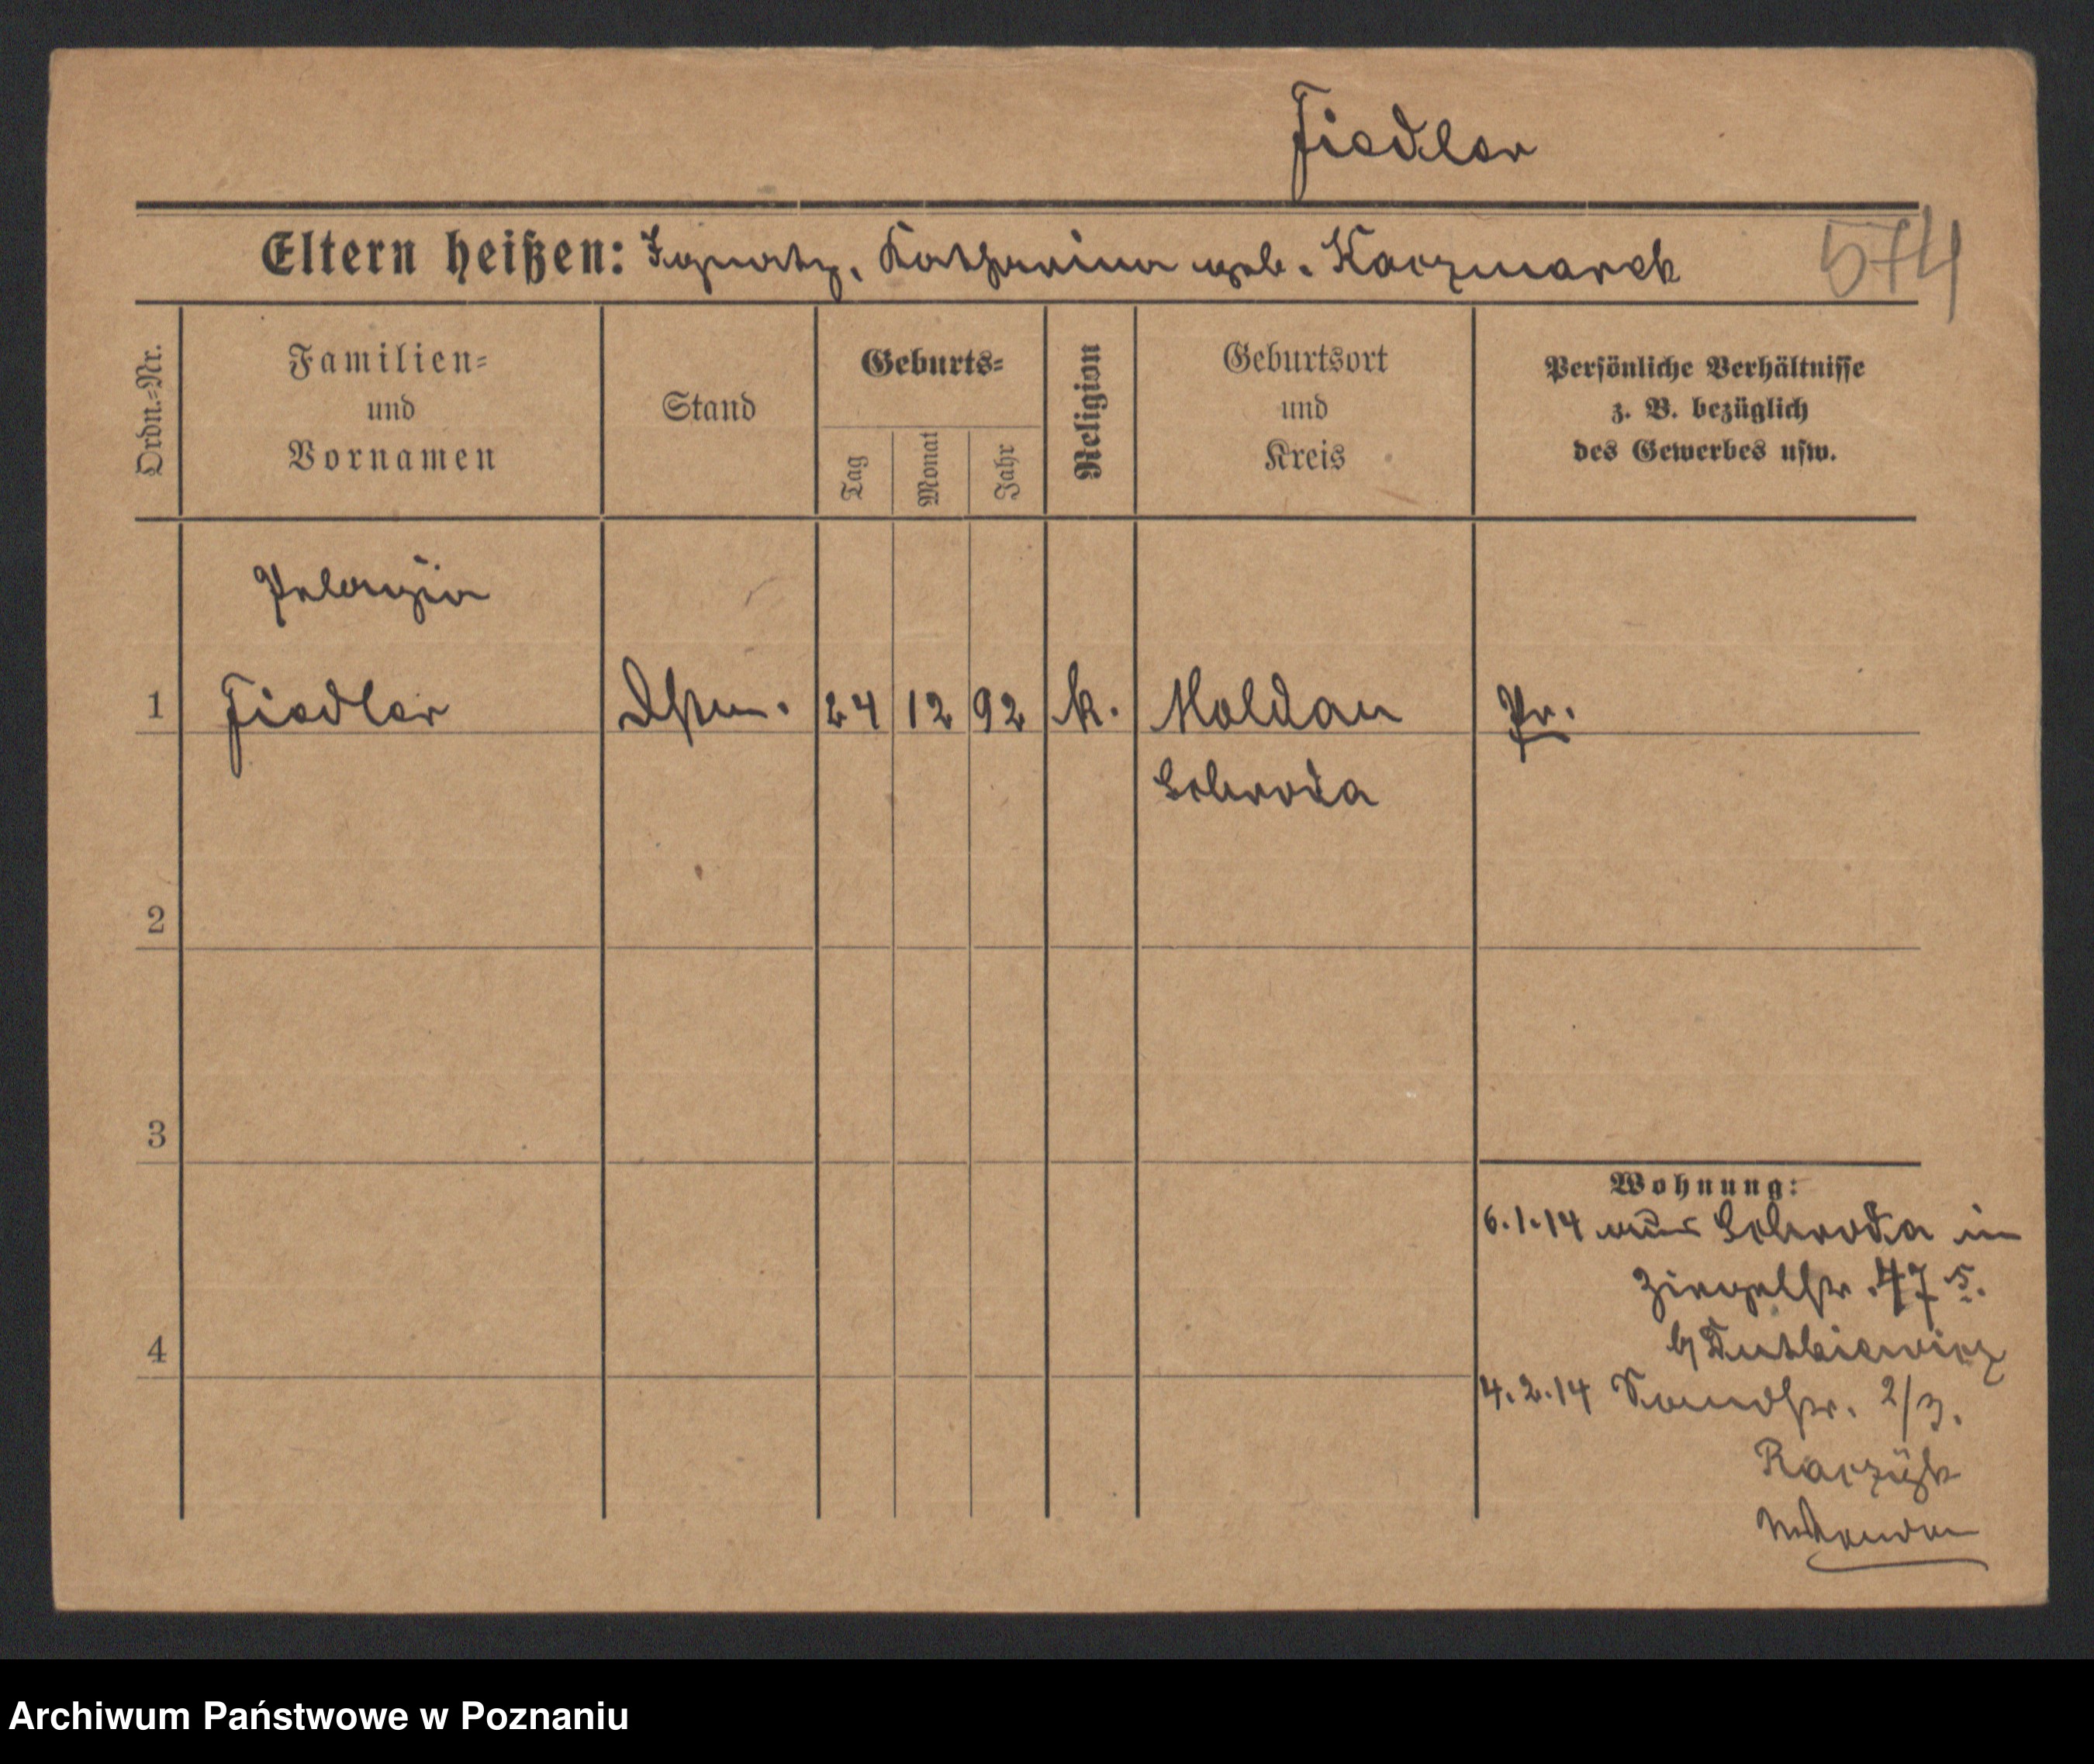 Fiedler
Eltern heißen: Ignatz, Katharina geb. Kaczmarek
574
Ordn.=Nr.
Familien=
und
Vornamen
Stand
Geburts=
Tag
Monat
Jahr
Religion
Geburtsort
und
Kreis
Persönliche Verhältnisse
z. B. bezüglich
des Gewerbes usw.
Pelagia
1 Fiedler Dstm. 24 12 92 k. Moldau Pr.
Schroda
2
3
Wohnung:
6.1.14 aus Schroda in
Ziegelstr. 47
b/ Dutkiewicz
4
4.2.14 2/3.
Raczÿk
Archiwum Państwowe w Poznaniu